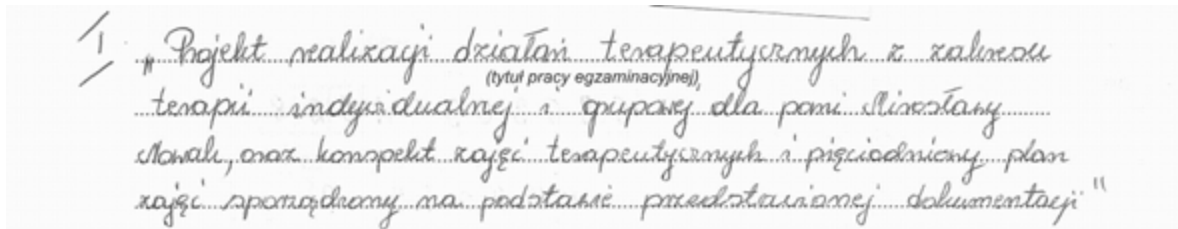 /1/
„Projekt realizacji działań terapeutycznych z zakresu
(tytuł pracy egzaminacyjnej)
terapii indywidualnej i grupowej dla pani Mirosławy
Nowak, oraz konspekt zajęć terapeutycznych i pięciodniowy plan
zajęć sporządzony na podstawie przedstawionej dokumentacji"